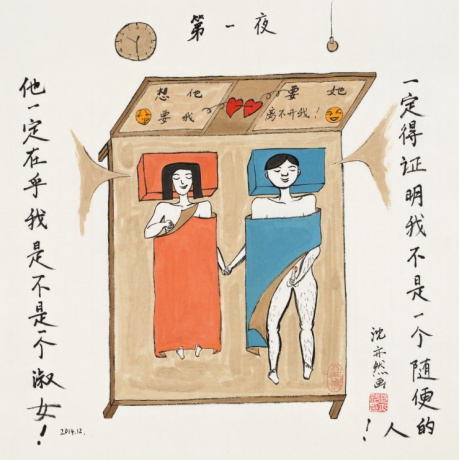 第一夜
想他
要我
要她
离不开我！
一定得证明我不是一个随便的人！
沈亦然画
他一定在乎我是不是一个淑女！
2014.12.